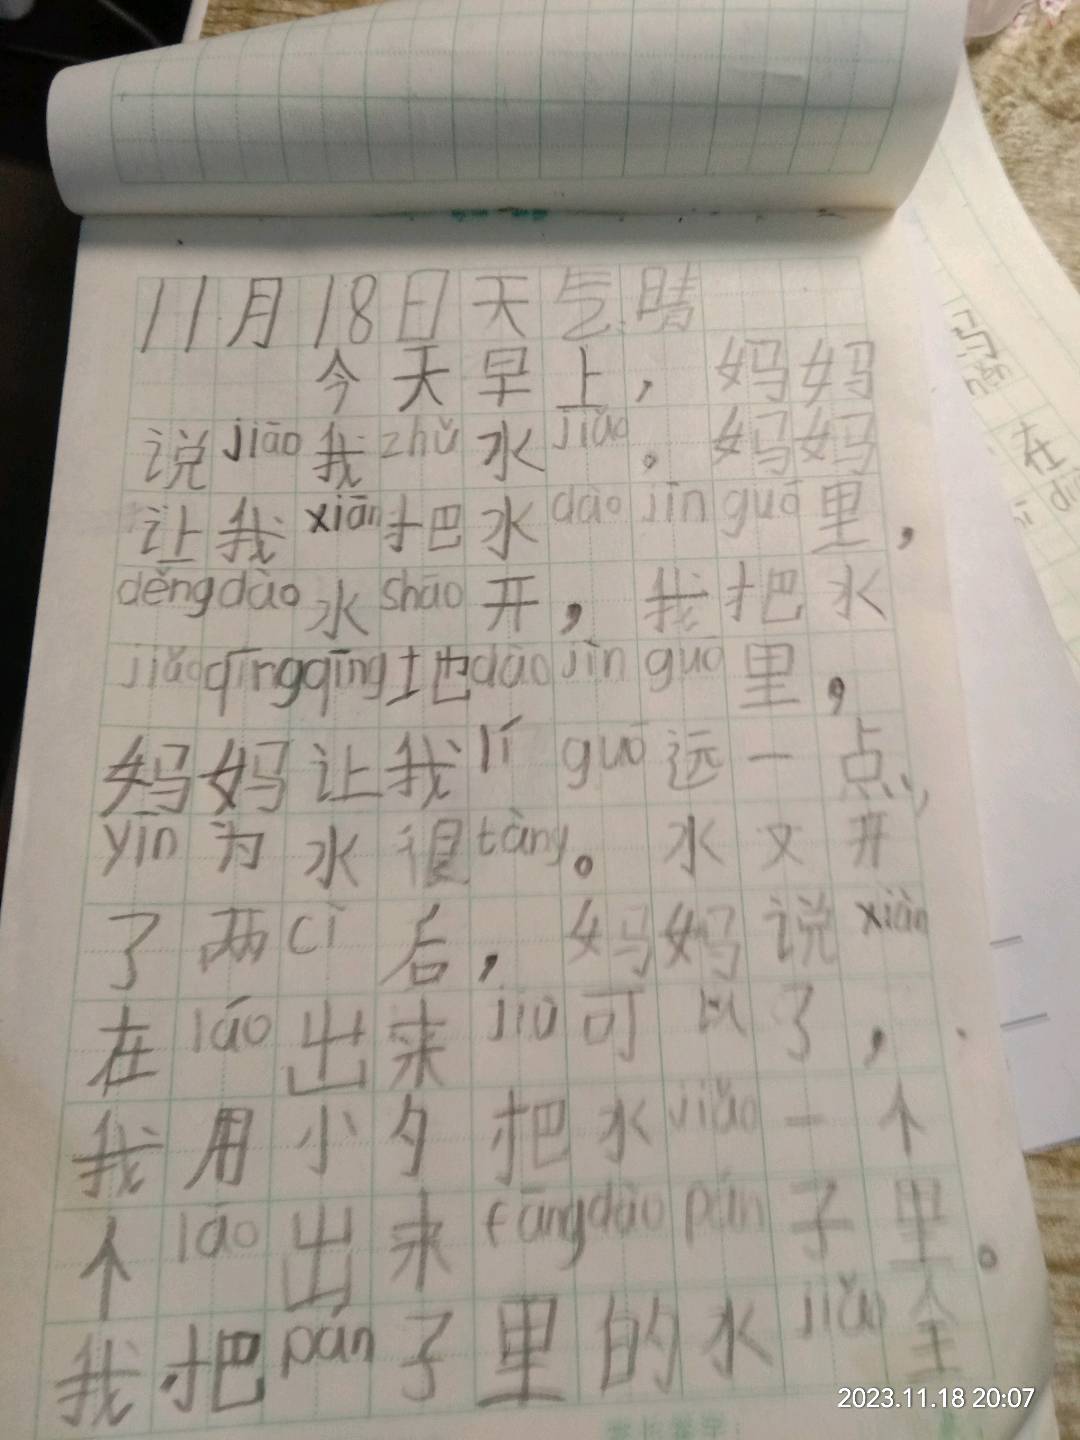 11月18日天气晴
今天早上，妈妈
说jiāo我zhǔ水jiǎo。妈妈
让我xiān把水dào jìn guō里，
děngdào水shāo开，我把水
jiǎoqīngqīng地dào jìn guō里，
妈妈让我lí guō远一点，
yīn为水很tàng。水文开
了两cì后，妈妈说xiàn
在lāo出来jiù可以了，
我用小勺把水jiǎo一个
个lāo出来fàngdào pán子里。
我把pán子里的水jiǎo全
在
2023.11.18 20:07